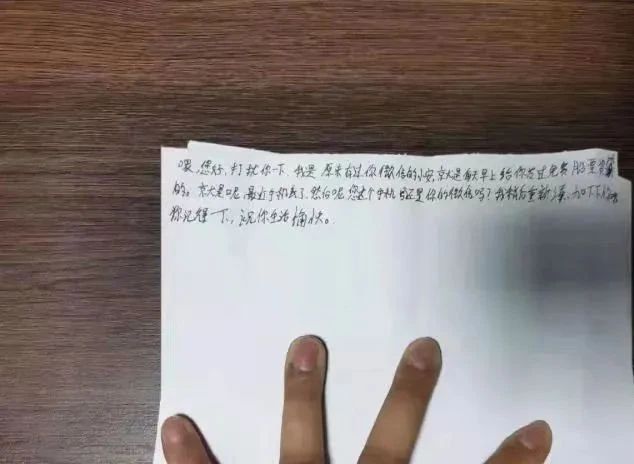 喂,您好,打扰你下 我是 原来有过你微信的小安,就是每天早上给你发过免费股票资讯
的。就是呢 最近手机丢了,然后呢,您这个手机号还是你的微信吗?我稍后重新 加下你
你记得一下,祝你生活愉快。